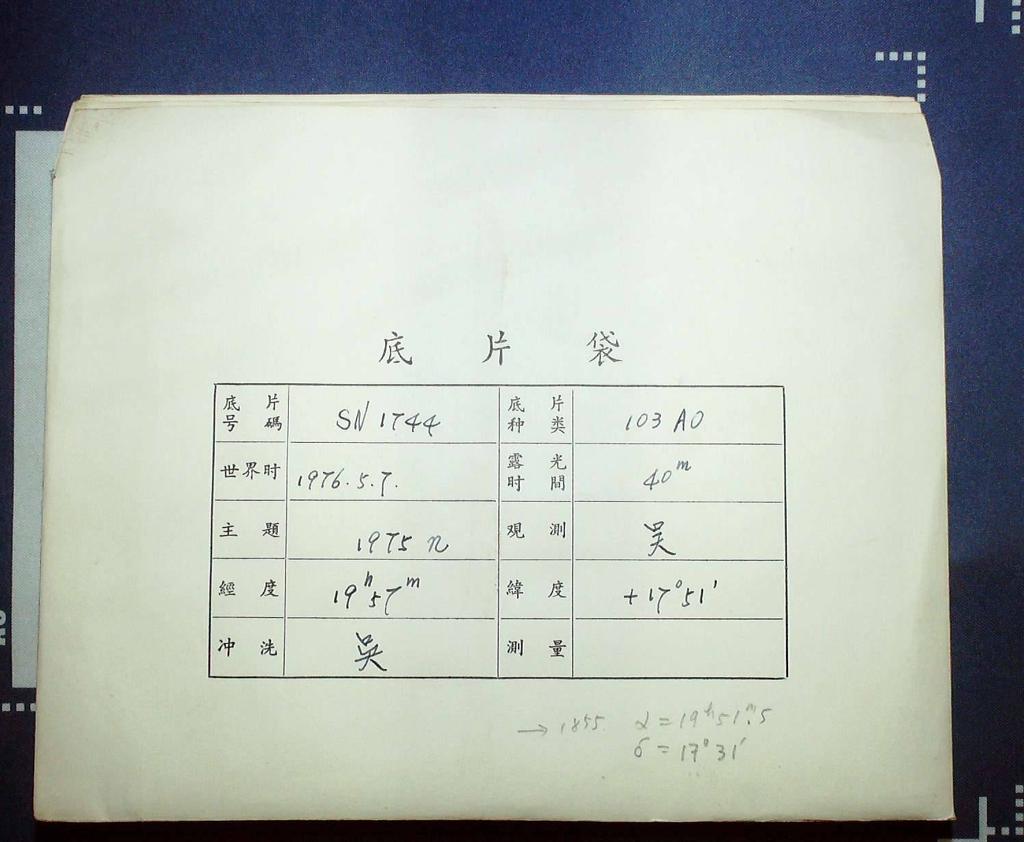 底片袋
底片号碼 SN 1744 底片种类 103 AO
世界时 1976.5.7. 露光时間 40ᵐ
主題 1975 n 观測 吴
經度 19ʰ57ᵐ 緯度 +17°51'
冲洗 吳 測量
→ 1855. α = 19ʰ51ᵐ.5
δ = 17°31'